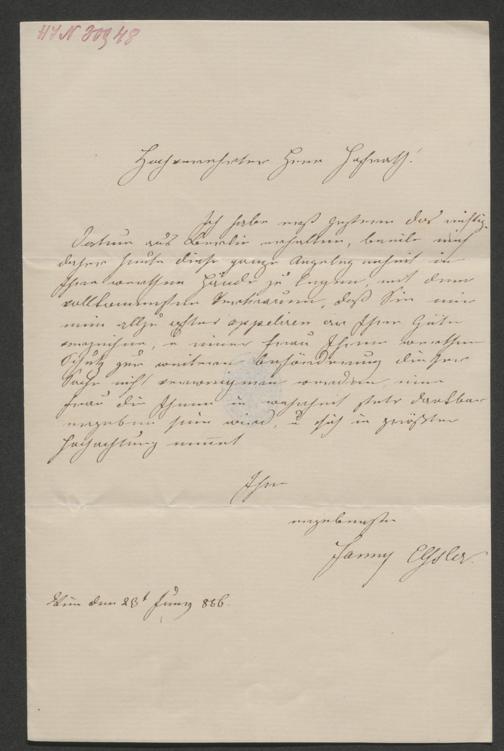 HIN 20948
Hochverehrter Herr Hofrath!
Ich habe erst gestern das richtige
Datum aus Berlin erhalten, beeile mich
daher heute diese ganze Angelegenheit in
Ihre werthen Hände zu legen, mit dem
vollkommensten Vertrauen, daß Sie mir
mein allzu öfter appeliren an Ihre Güte
verzeihen, u einer Frau Ihren werthen
Schutz zur weiteren Beförderung dieser
Sache nicht verweigern werden, eine
Frau die Ihnen in Wahrheit stets dankbar
ergeben sein wird, u sich in größter
Hochachtung nennt
Ihre
ergebenste
Fanny Elßler
Wien den 23t Juny 886.